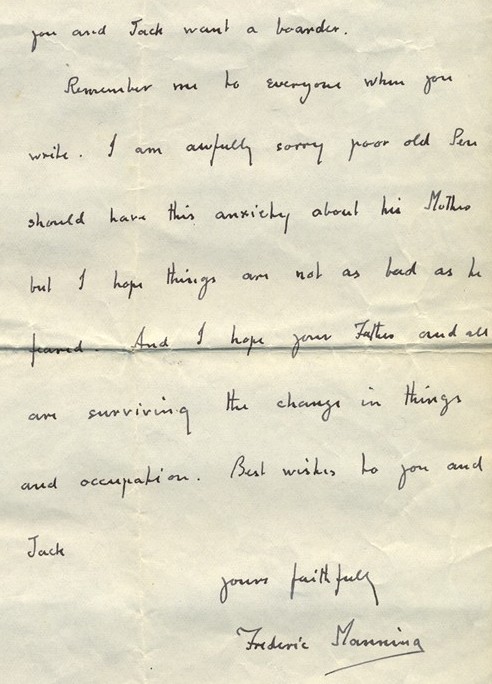 you and Jack want a boarder.
Remember me to everyone when you
write. I am awfully sorry poor old Pen
should have this anxiety about his Mother
but I hope things are not as bad as he
feared. And I hope your Father and all
are surviving the change in things
and occupation. Best wishes to you and
Jack
yours faithfully
Frederic Manning